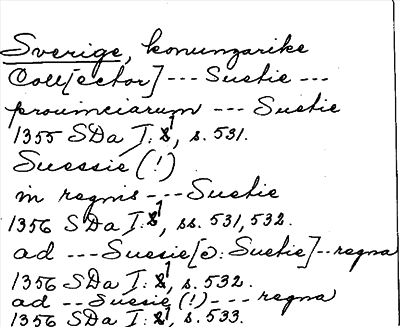 Sverige, konungarike
Coll[ector] --- Suetie ---
prouinciarum --- Suetie
1355 SDa I:1, s. 531.
Suessie (!)
in regnis --- Suetie
1356 SDa I:1, ss. 531, 532.
ad --- Suesie[ɔ: Suetie] -- regna
1356 SDa I:1, s. 532.
ad -- Suesie (!) ---- regna
1356 SDa I:1, s. 533.